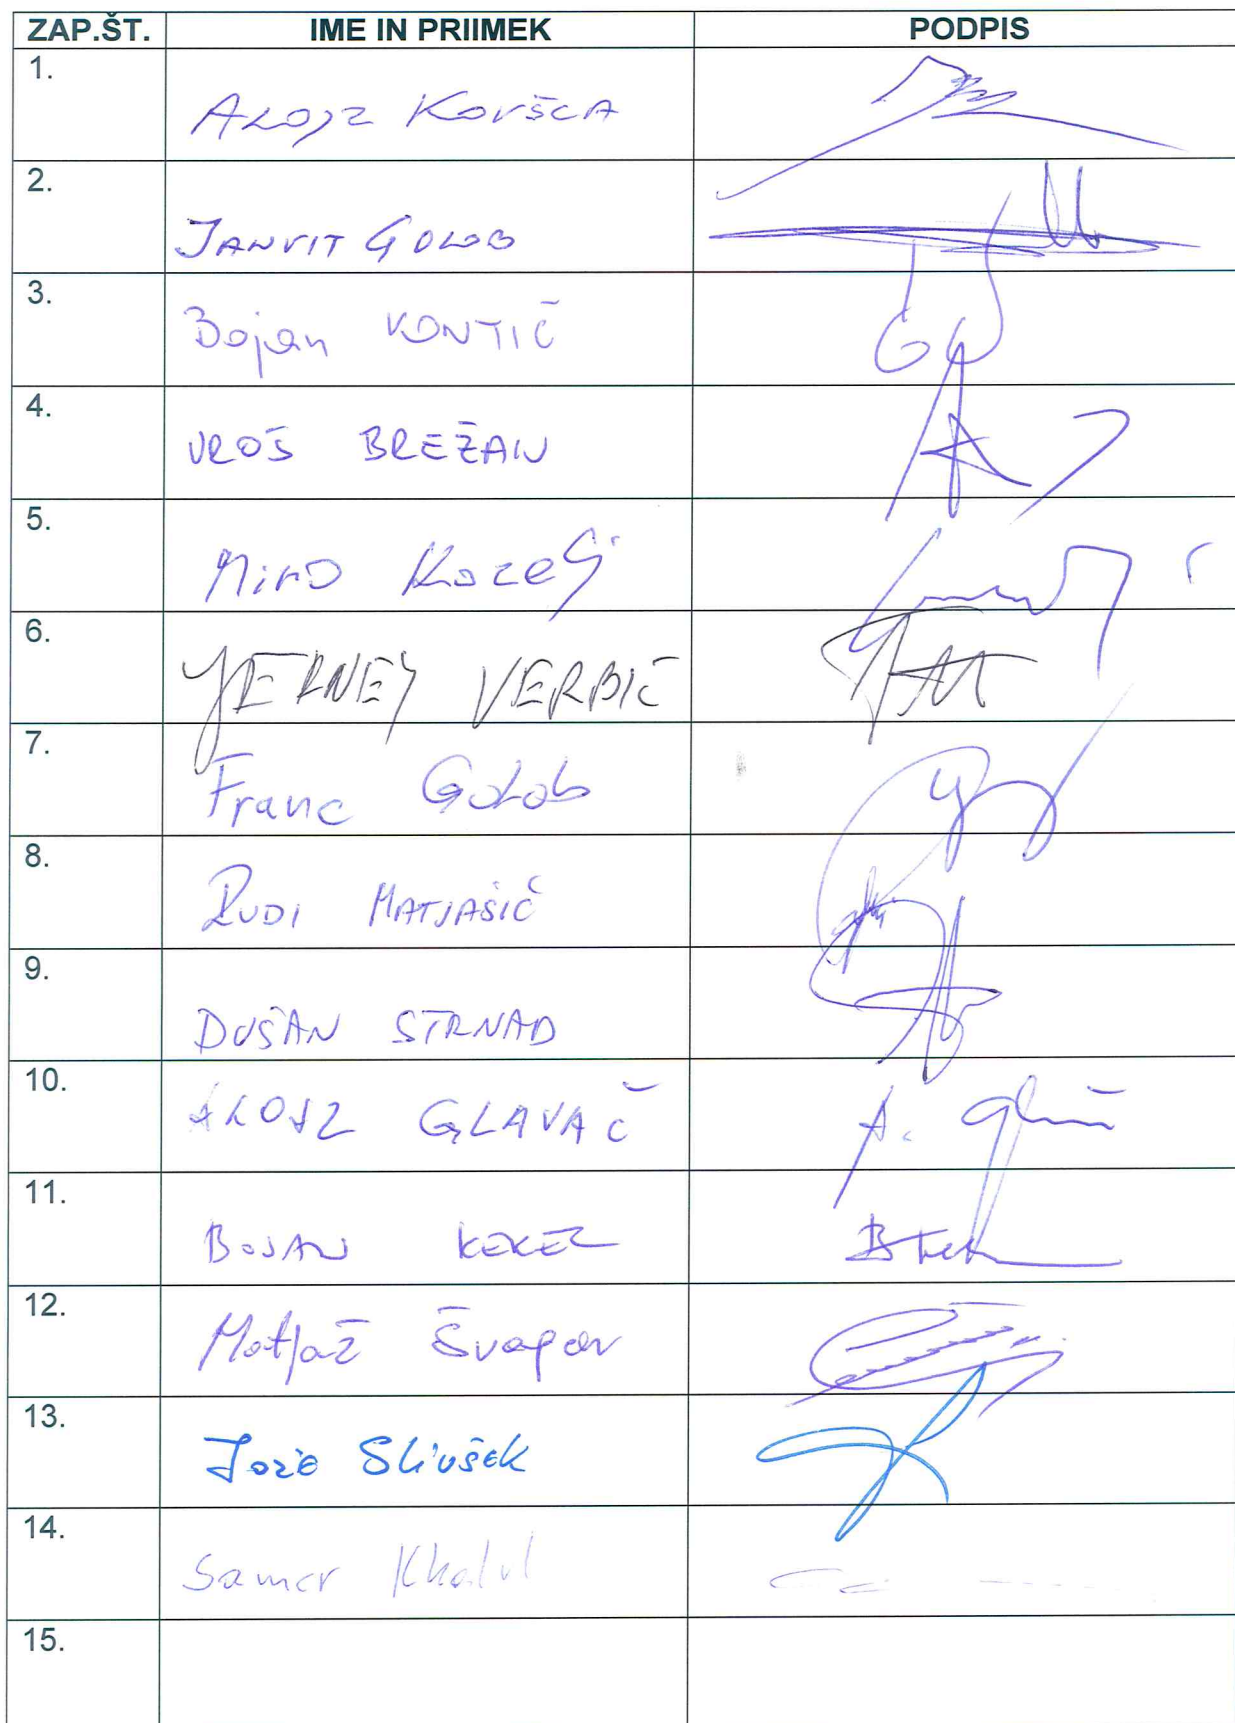 ZAP.ŠT. IME IN PRIIMEK PODPIS
1. ALOJZ KOVŠCA
2. JANVIT GOLOB
3. Bojan KONTIČ
4. UROŠ BREŽAN
5. Miro Kozelj
6. YERNEY VERBIČ
7. Franc Golob
8. RUDI MATJAŠIČ
9. DUŠAN STRNAD
10. ALOJZ GLAVAČ A.
11. BOJAN KEKEC
12. Matjaž Švagan
13. Jože Slivšek
14. Samer Khalil
15.